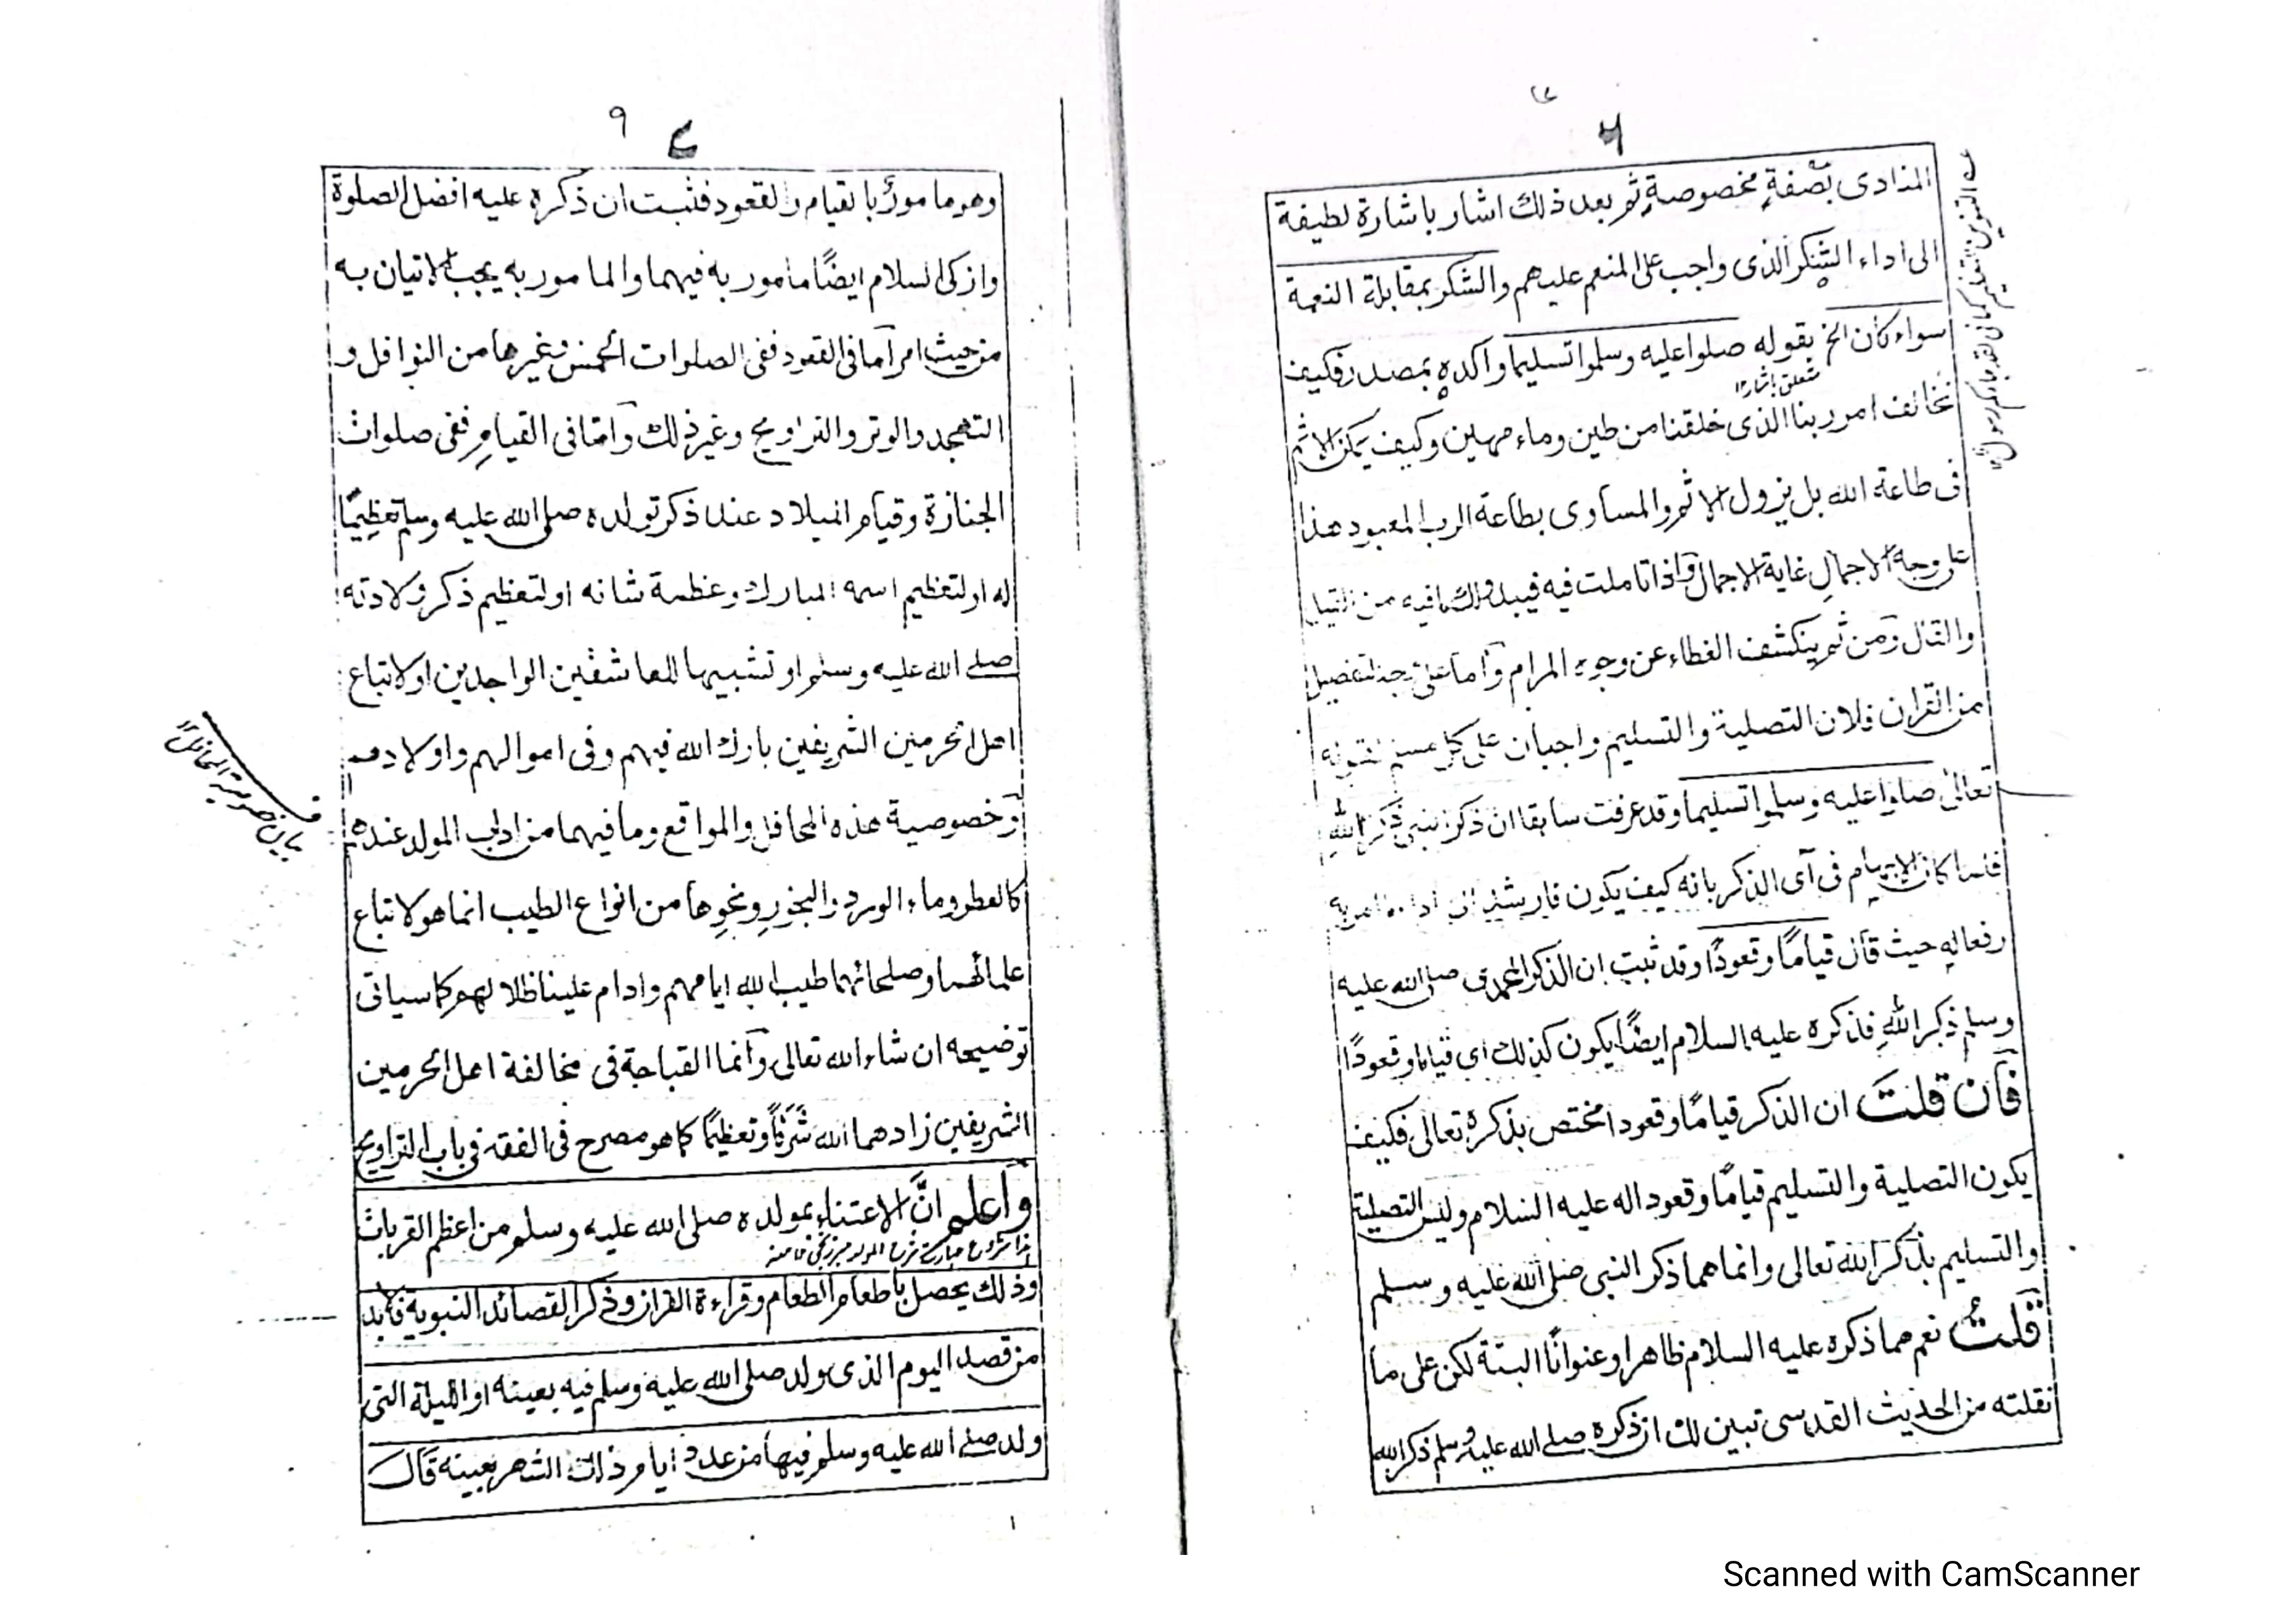 ٦
المنادى بصفةٍ مخصوصةٍ ثم بعد ذلك اشار باشارة لطيفة
الى اداء الشكر الذى واجب على المنعم عليهم والشكر بمقابلة النعمة
سواء كان الخ بقوله صلوا عليه وسلموا تسليما واكده بمصدر فكيف
متعلق باشار ١٢
نخالف امر ربنا الذى خلقنا من طين وماء مهين وكيف يمكن الاثم
فى طاعة الله بل يزول الاثم والمساوى بطاعة الرب المعبود هذا
على وجه الاجمال غاية الاجمال واذا تاملت فيه فيبدو لك ما فيه من القيل
والقال ومن ثم ينكشف الغطاء عن وجوه المرام وآما على وجه التفصيل
من القرآن فلان التصلية والتسليم واجبان على كل مسلم لقوله
تعالىٰ صلوا عليه وسلموا تسليما وقد عرفت سابقا ان ذكر النبى ذكر اللهِ
فلما كان الابهام فى آى الذكر بانه كيف يكون فارشد الى اداء
رفعا به حيث قال قيامًا وقعودًا وقد ثبت ان الذكر المحمدى صلى الله عليه
وسلم ذكر اللهِ فذكره عليه السلام ايضًا يكون كذلك اى قياما وقعودًا
فآن قلت ان الذكر قيامًا وقعودا مختص بذكره تعالى فكيف
يكون التصلية والتسليم قيامًا وقعودا له عليه السلام وليس التصلية
والتسليم بذكر الله تعالى وانما هما ذكر النبى صلى الله عليه وسلم
قلتُ نعم هما ذكره عليه السلام ظاهرا وعنوانًا البتة لكن على ما
نقلته من الحديث القدسى تبين لك ان ذكره صلے الله عليه وسلم ذكر الله
٩
٧
وهو مامورٌ بالقيام والقعود فثبت ان ذكره عليه افضل الصلوة
وازكى السلام ايضًا مامور به فيهما والمامور به يجب الاتيان به
من حيث امر آما فى القعود ففى الصلوات الخمس وغيرها من النوافل و
التهجد والوتر والتراويح وغير ذلك وآمّا فى القيام ففى صلوات
الجنازة وقيام الميلاد عند ذكر تولده صلى الله عليه وسلم تعظيمًا
له او لتعظيم اسمه المبارك وعظمة شانه او لتعظيم ذكر ولادته
صلے الله عليه وسلم او تشبيها للعاشقين الواجدين او لاتباع
اهل الحرمين الشريفين بارك الله فيهم وفى اموالهم واولادهم
وخصوصية هذه المحافل والمواقع وما فيهما من اداب المولد عندهم
كالعطر وماء الورد والبخورِ ونحوِها من انواع الطيب انما هو لاتباع
علمائهما وصلحائهما طيب الله ايامهم وادام علينا ظلالهم كما سياتى
توضيحه ان شاء الله تعالى وآنما القباحة فى مخالفة اهل الحرمين
الشريفين زادهما الله شَرَفًا وتعظيمًا كما هو مصرح فى الفقه فى باب التراويح
وآعلم انَّ الاعتناء بمولده صلى الله عليه وسلم من اعظم القربات
وذلك يحصل باطعام الطعام وقراءة القران وذكر القصائد النبوية فلابد
من قصد اليوم الذى ولد صلى الله عليه وسلم فيه بعينه او الليلة التى
ولد صلے الله عليه وسلم فيها من عدد ايام ذلك الشهر بعينه قآل
Scanned with CamScanner